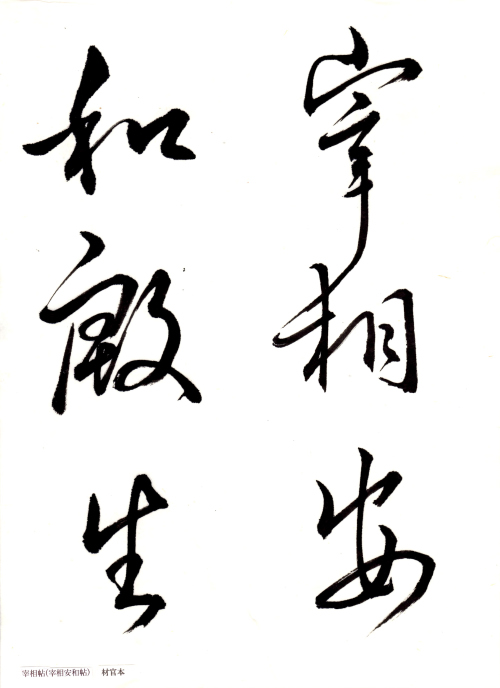 宰相安
和殿生
宰相帖(宰相安和帖) 材官本